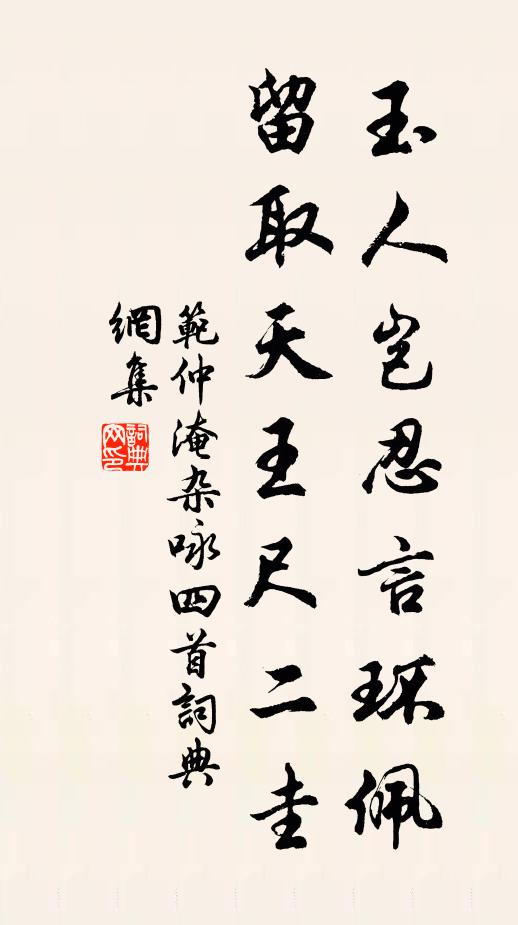 玉人岂忍言环佩
留取天王尺二圭
範仲淹杂咏四首詞典
網集
詞典
网印